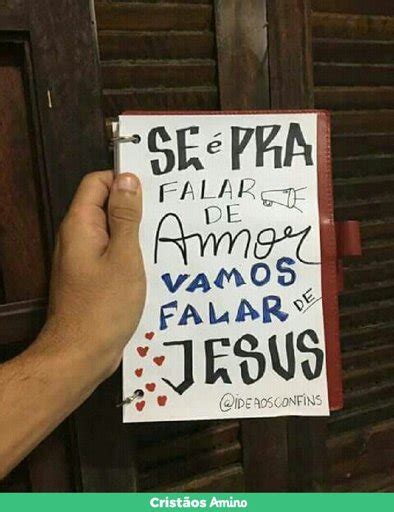 SE é PRA
FALAR
DE
Amor
VAMOS
FALAR DE
JESUS
@IDEAOSCONFINS
Cristãos Amino